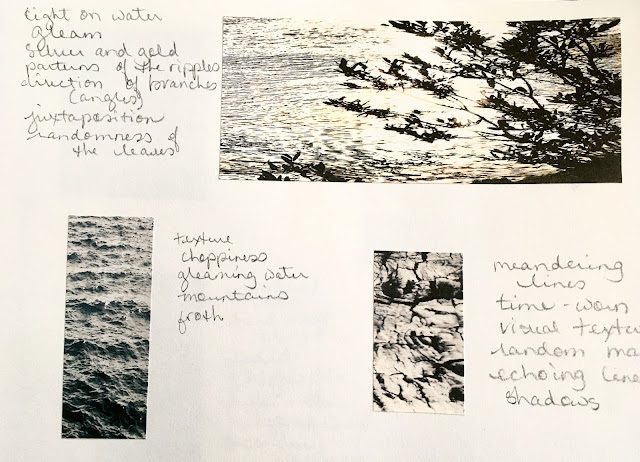 light on water
gleam
silver and gold
patterns of the ripples
direction of branches
(angles)
juxtaposition
randomness of
the leaves
texture
choppiness
gleaming water
mountains
froth
meandering
lines
time-worn
visual textu
random ma
echoing line
shadows